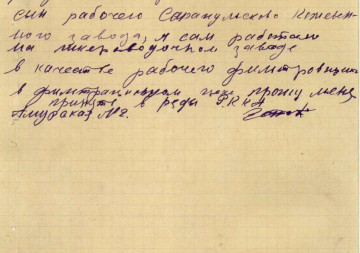 сын рабочего Сарапульского Кожевен
ного завода, я сам работаю
на ликероводочном заводе
в качестве рабочего фильтровщика
в фильтрационном цехе прошу меня
принять в ряды РККА